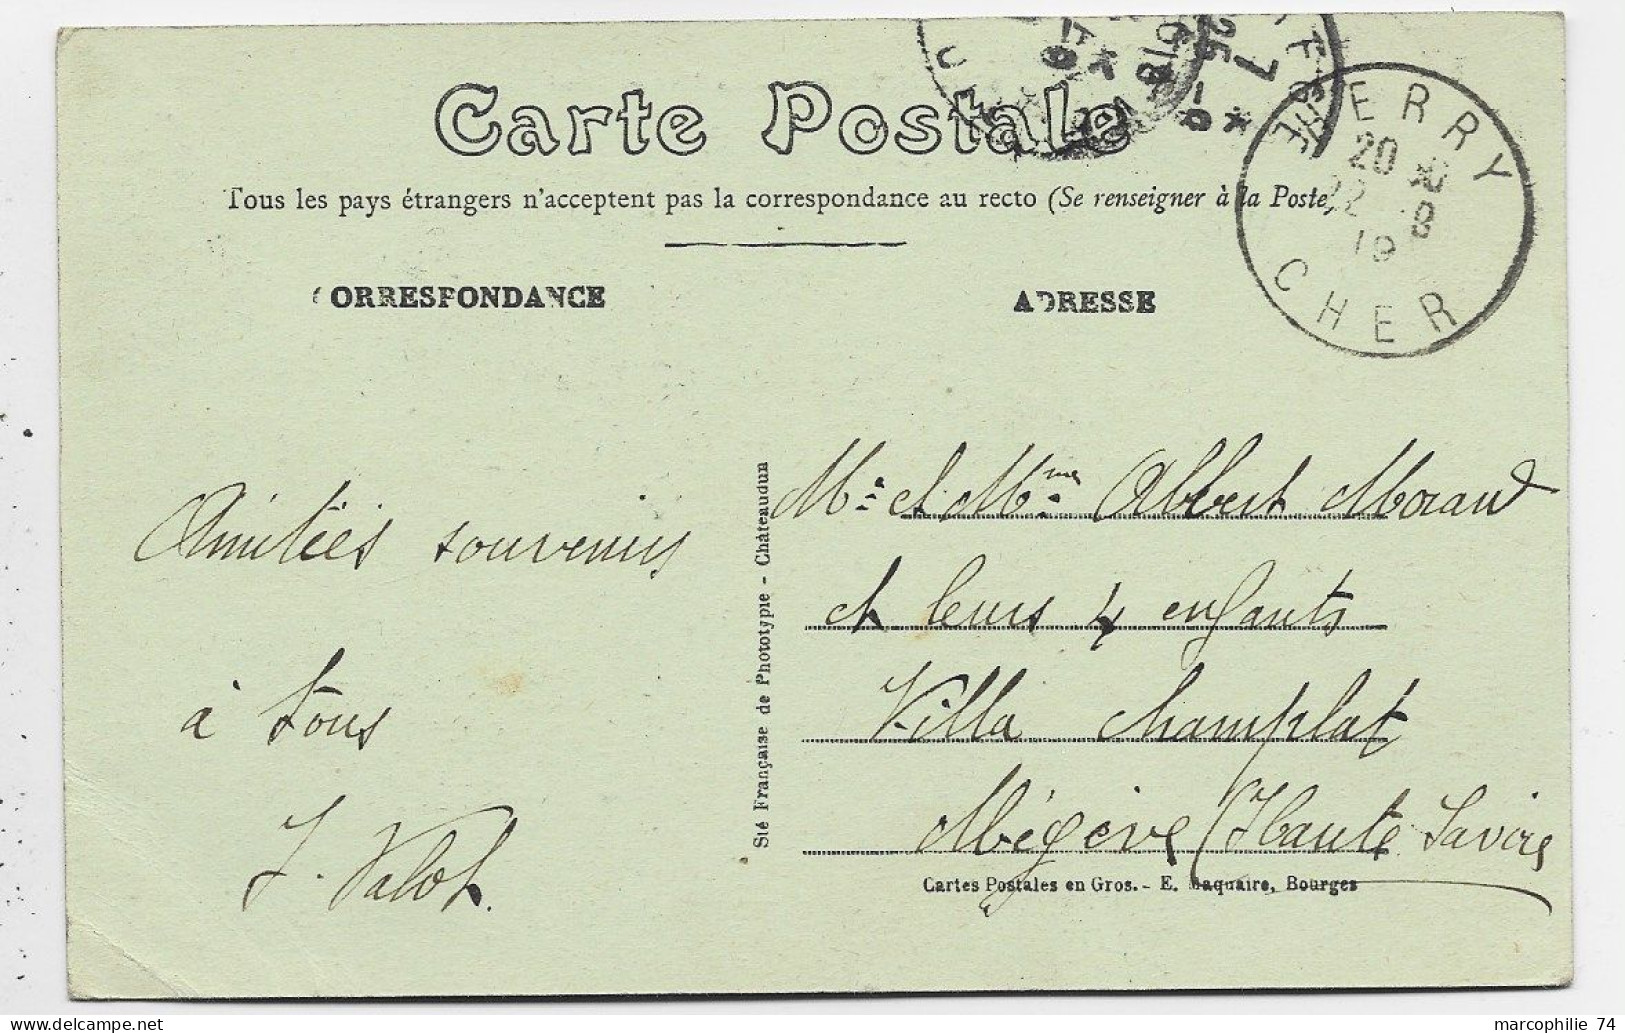 Carte Postale
Tous les pays étrangers n'acceptent pas la correspondance au recto (Se renseigner à la Poste)
CORRESPONDANCE
ADRESSE
HERRY
20
22 8
19
CHER
Amitiés souvenirs
à tous
J. Valot.
Sté Française de Phototypie - Châteaudun
Mr et Mme Albert Morand
et leurs 4 enfants
Villa Champlat
Mégève (Haute Savoie
Cartes Postales en Gros. - E. Maquaire, Bourges
marcophilie 74